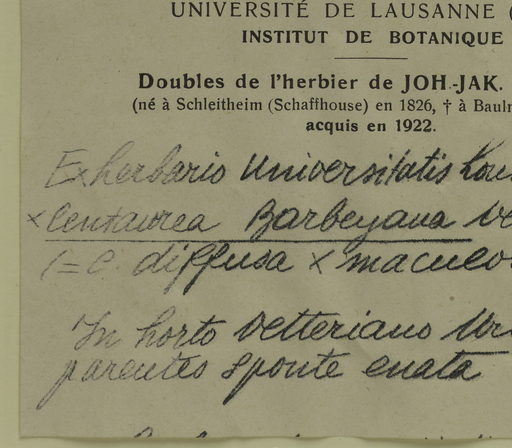 UNIVERSITÉ DE LAUSANNE (
INSTITUT DE BOTANIQUE
Doubles de l'herbier de JOH.-JAK.
(né à Schleitheim (Schaffhouse) en 1826, † à Baulm
acquis en 1922.
Ex herbario Universitatis
× Centaurea Barbeyana
(= C. diffusa × maculo
In horto Vetteriano
parentes sponte enata